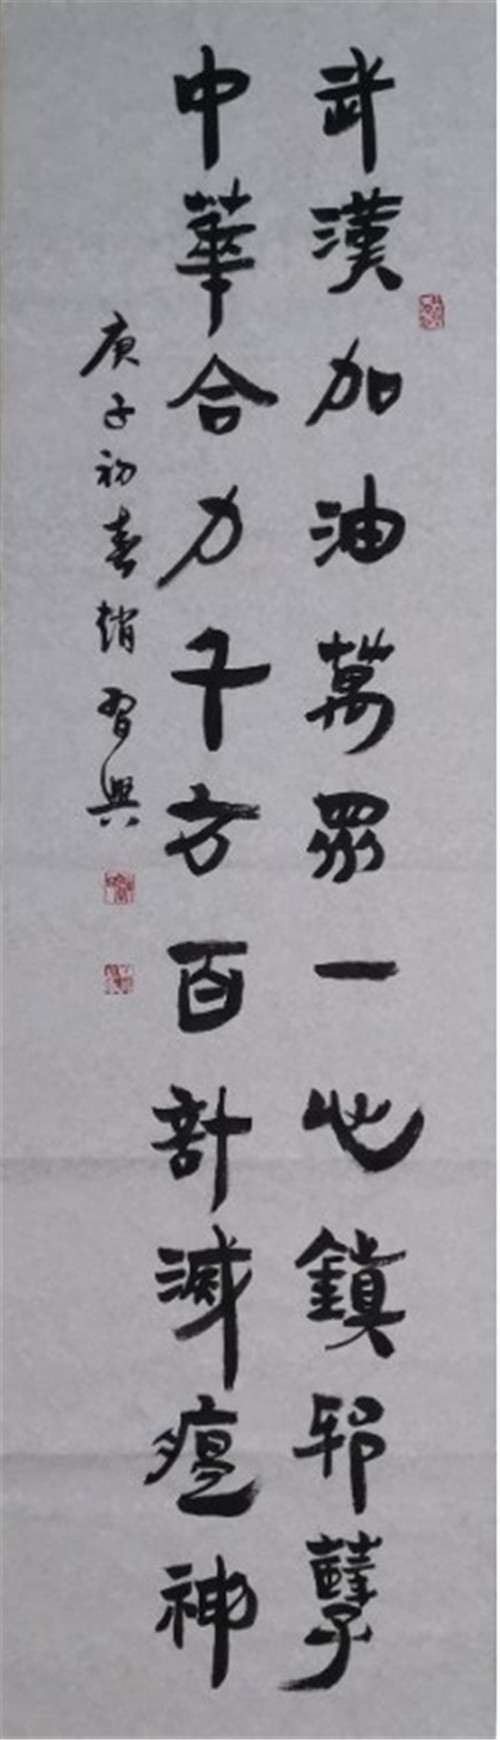 武漢加油萬眾一心鎮邪孽
中華合力千方百計滅瘟神
庚子初春趙習興